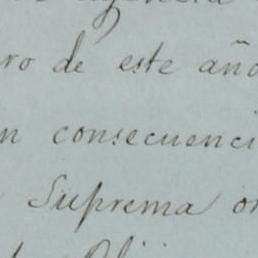 ro de este año
n consecuenci
Suprema or